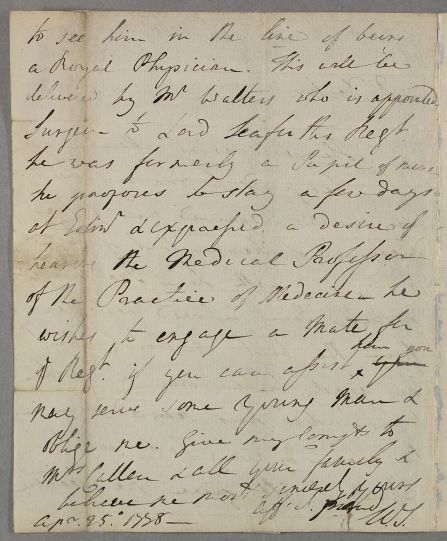 to see him in the line of being
a Royal Physician. This will be
delivered by Mr Walters who is appointed
Surgeon to Lord Seaforths Regt
he was formerly a Pupil of mine
he proposes to stay a few days
at Edinr & expressed a desire of
hearing the Medical Professor
of the Practice of Medecine he
wishes to engage a Mate for
ye Regt. if you can assist him you
may serve some Young Man &
oblige me. Give my Compts to
Mrs Cullen & all your family &
believe me most sincerely yours
afft. friend
Apr. 25. 1778 WS.